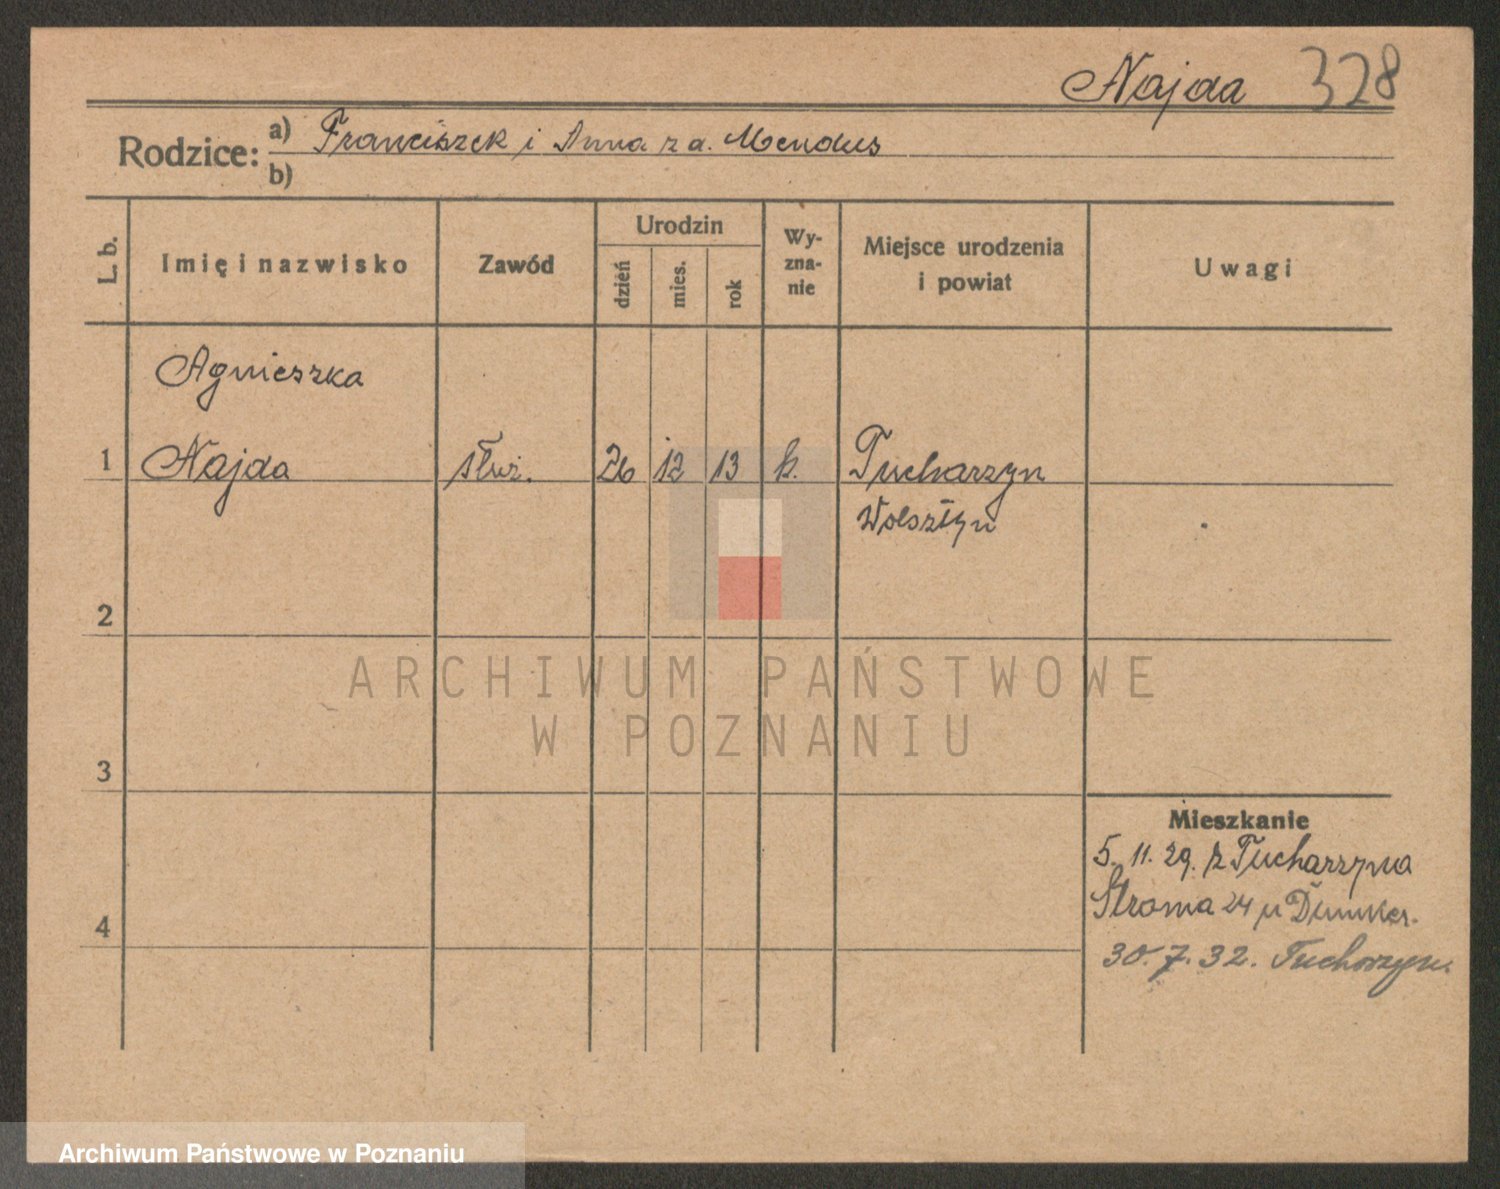 Najda 328
Rodzice: a) Franciszek i Anna z d. Mendus
b)
L. b.
Imię i nazwisko
Zawód
Urodzin
dzień
mies.
rok
Wy-
zna-
nie
Miejsce urodzenia
i powiat
Uwagi
Agnieszka
1 Najda służ. 26 12 13 k. Tucharzyn
Wolsztyn
2
ARCHIWUM PAŃSTWOWE
W POZNANIU
3
Mieszkanie
5. 11. 29. z Tucharzyna
Stroma 24 u
4
30. 7. 32. Tuchorzyn.
Archiwum Państwowe w Poznaniu